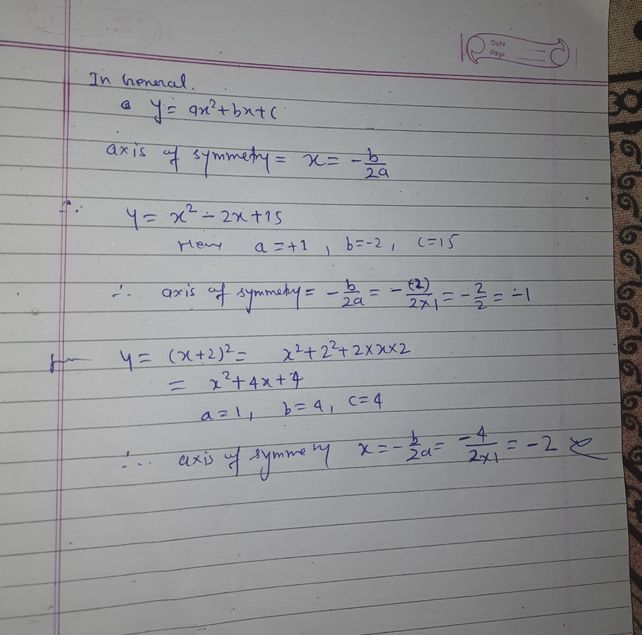 Date
Page
In General.
y = ax²+bx+c
axis of symmetry = x = -b/2a
∴ y = x² - 2x+15
Here a = +1 , b=-2 , c=15
∴ axis of symmetry = -b/2a = -(2)/2×1 = -2/2 = -1
y = (x+2)² = x²+2²+2×x×2
= x²+4x+4
a=1, b=4, c=4
∴ axis of symmery x = -b/2a = -4/2×1 = -2